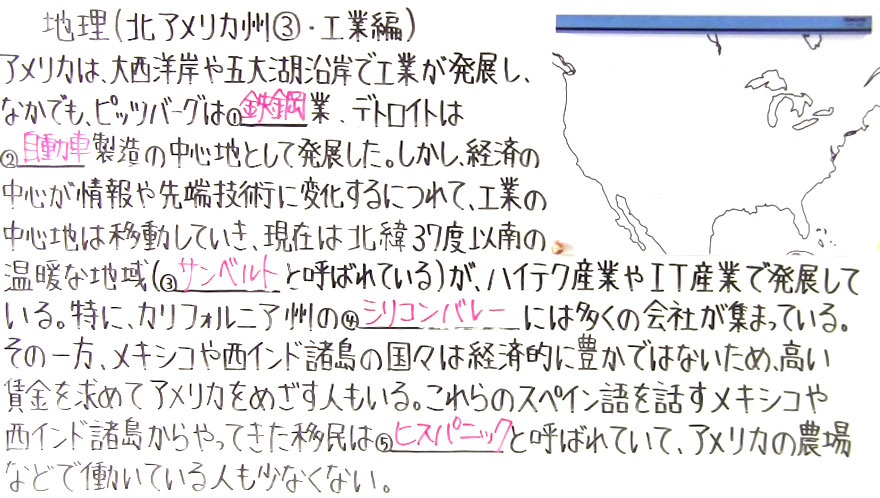 地理(北アメリカ州③・工業編)
アメリカは、大西洋岸や五大湖沿岸で工業が発展し、
なかでも、ピッツバーグは①鉄鋼業、デトロイトは
②自動車製造の中心地として発展した。しかし、経済の
中心が情報や先端技術に変化するにつれて、工業の
中心地は移動していき、現在は北緯37度以南の
温暖な地域(③サンベルトと呼ばれている)が、ハイテク産業やIT産業で発展して
いる。特に、カリフォルニア州の④シリコンバレーには多くの会社が集まっている。
その一方、メキシコや西インド諸島の国々は経済的に豊かではないため、高い
賃金を求めてアメリカをめざす人もいる。これらのスペイン語を話すメキシコや
西インド諸島からやってきた移民は⑤ヒスパニックと呼ばれていて、アメリカの農場
などで働いている人も少なくない。